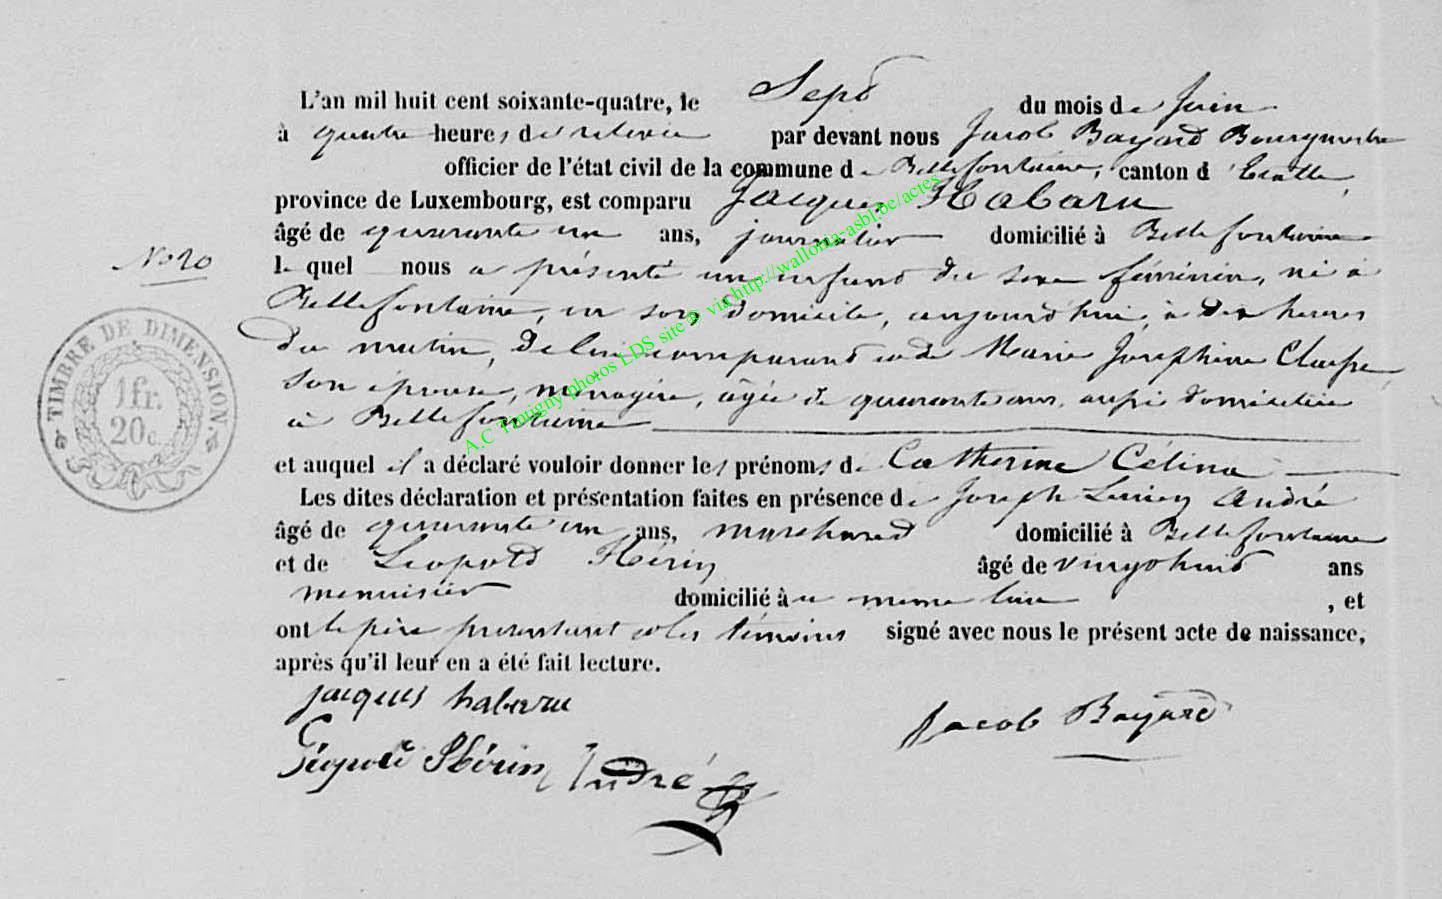 L'an mil huit cent soixante-quatre, le Sept du mois de Juin
à quatre heures de relevée par devant nous Jacob Bayard Bourgmestre
officier de l'état civil de la commune de Bellefontaine, canton d'Etalle,
province de Luxembourg, est comparu Jacques Habaru
âgé de quarante un ans, journalier domicilié à Bellefontaine
No 20
lequel nous a présenté un enfant du sexe féminin, né à
Bellefontaine, en son domicile, aujourd'hui, à dix heures
du matin, de lui comparant et de Marie Josephine
son épouse, ménagère, agée de quarante ans, aussi domiciliée
à Bellefontaine
et auquel il a déclaré vouloir donner les prénoms de Catherine Célina
Les dites déclaration et présentation faites en présence de Joseph Lucien André
âgé de quarante un ans, marchand domicilié à Bellefontaine
et de Léopold Hérin âgé de vingt huit ans
menuisier domicilié au meme lieu, et
ont le père présentant et les témoins signé avec nous le présent acte de naissance,
après qu'il leur en a été fait lecture.
jacques habaru
Jacob Bayard
Léopold Hérin André
TIMBRE DE DIMENSION
1 fr.
20 c.
A.C Tintigny photos LDS site @ via http://wallonia-asbl.be/actes